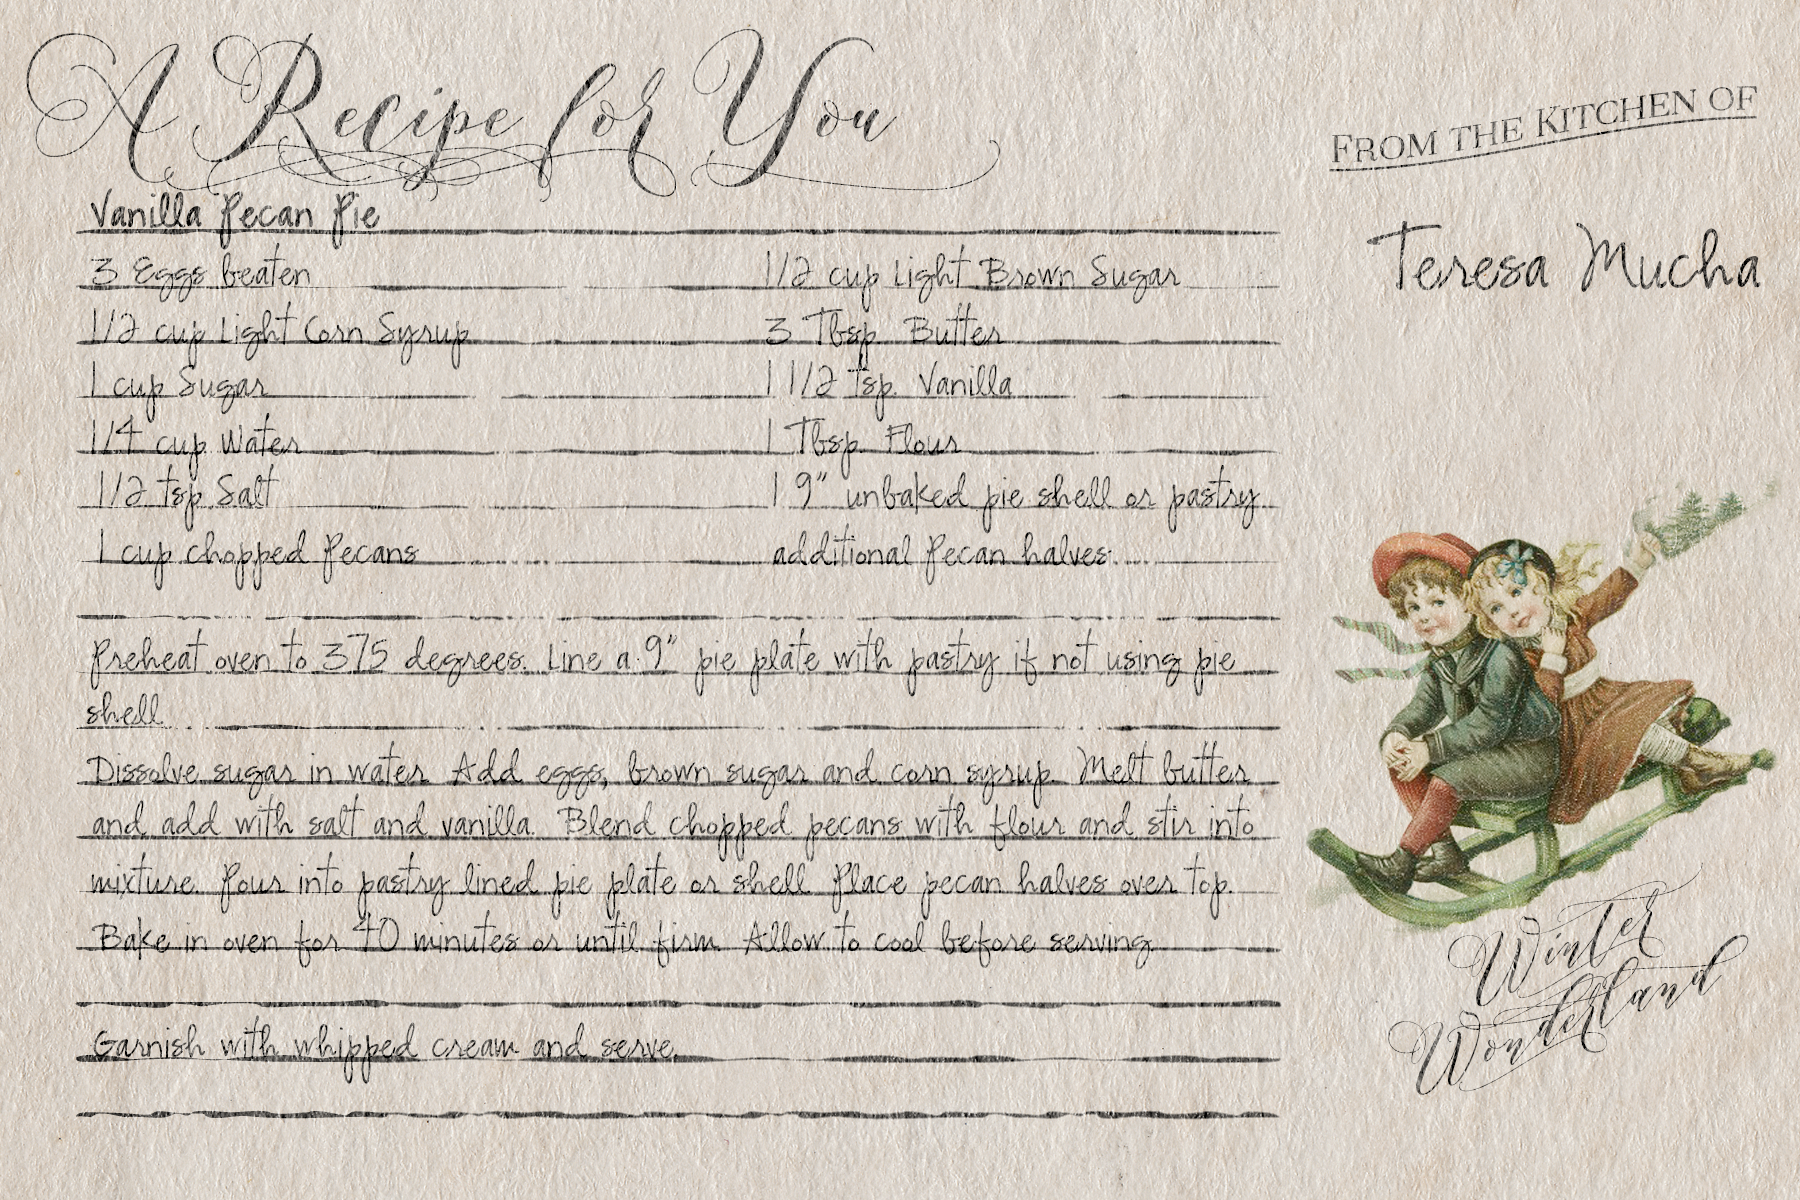 A Recipe for You
From the Kitchen of
Teresa Mucha
Vanilla Pecan Pie
3 Eggs beaten
1/2 cup Light Brown Sugar
1/2 cup Light Corn Syrup
3 Tbsp. Butter
1 cup Sugar
1 1/2 tsp. Vanilla
1/4 cup Water
1 Tbsp. Flour
1/2 tsp Salt
1 9" unbaked pie shell or pastry
1 cup chopped Pecans
additional Pecan halves.
Preheat oven to 375 degrees. Line a 9" pie plate with pastry if not using pie
shell.
Dissolve sugar in water. Add eggs, brown sugar and corn syrup. Melt butter
and add with salt and vanilla. Blend chopped pecans with flour and stir into
mixture. Pour into pastry lined pie plate or shell. Place pecan halves over top.
Bake in oven for 40 minutes or until firm. Allow to cool before serving.
Garnish with whipped cream and serve.
Winter
Wonderland